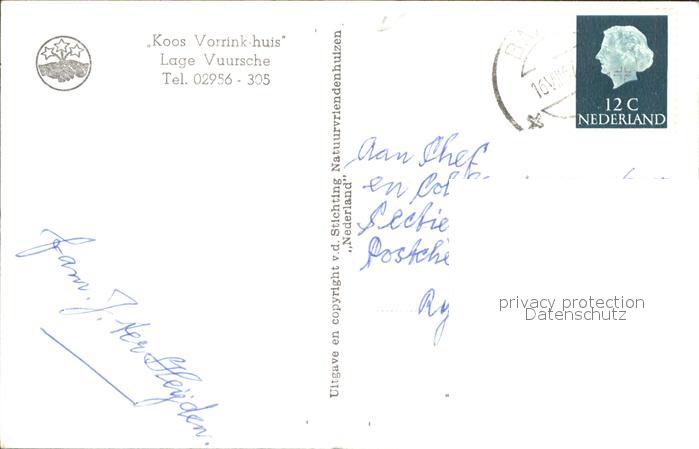 „Koos Vorrink-huis"
Lage Vuursche
Tel. 02956 - 305
Uitgave en copyright v.d. Stichting Natuurvriendenhuizen
„Nederland".
12 C
NEDERLAND
Aan Chef
en Col
Sectie
Postche
Ry
privacy protection
Datenschutz
Fam. J. ter Heijden.